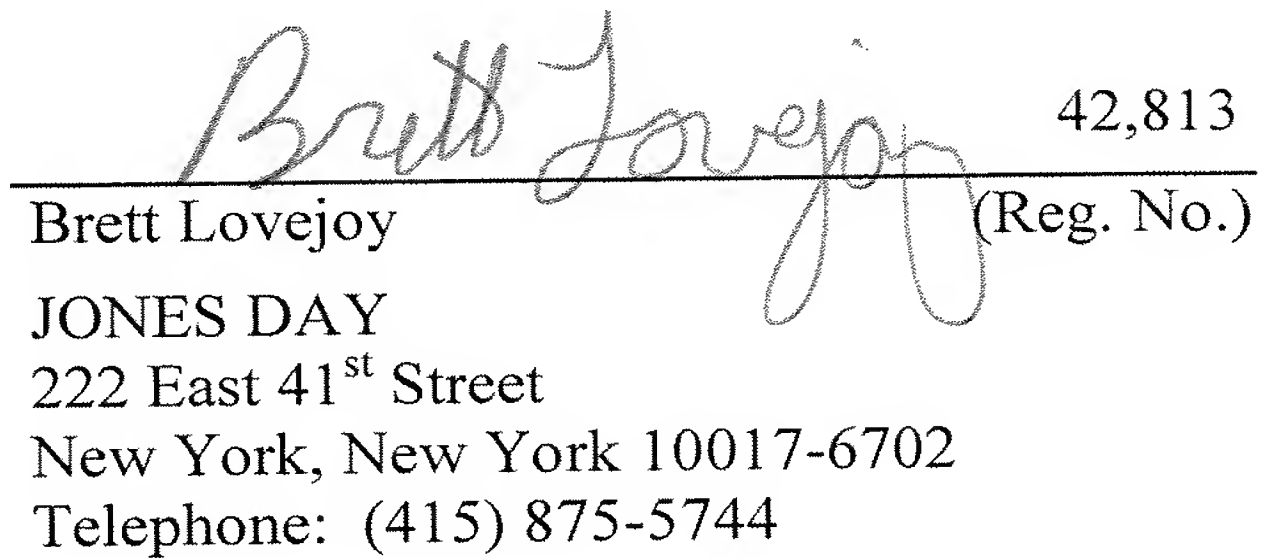 Brett Lovejoy 42,813
Brett Lovejoy (Reg. No.)
JONES DAY
222 East 41st Street
New York, New York 10017-6702
Telephone: (415) 875-5744